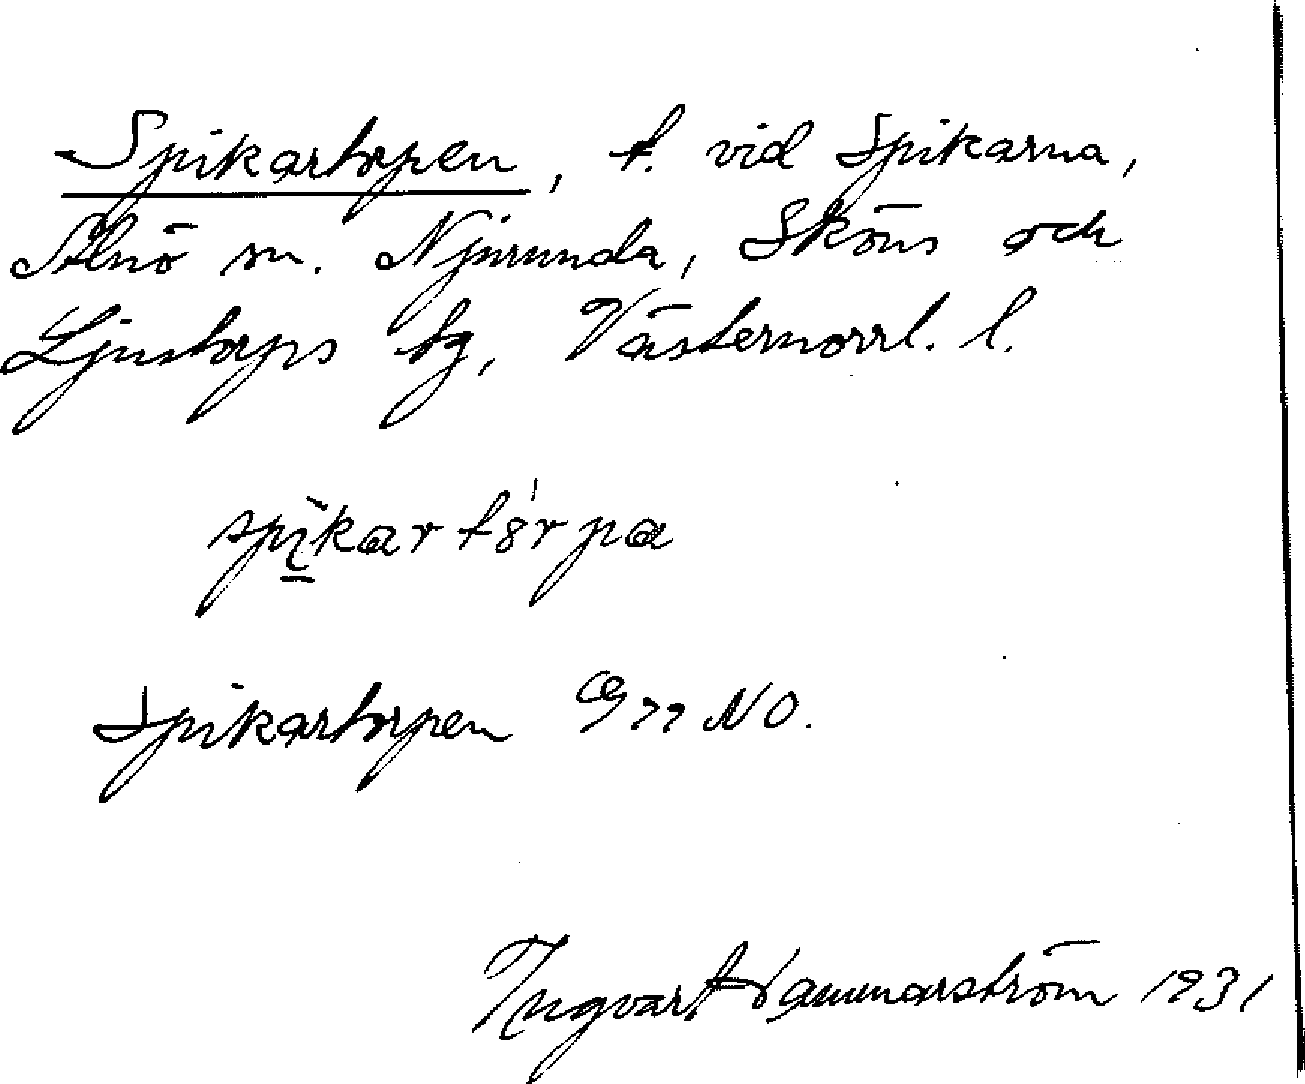 Spikartorpen, t. vid Spikarna,
Alnö sn. Njurunda, Sköns och
Ljustorps tg, Västernorrl. l.
spikar tórpa
Spikartorpen NO.
Ingvart Hammarström 1931